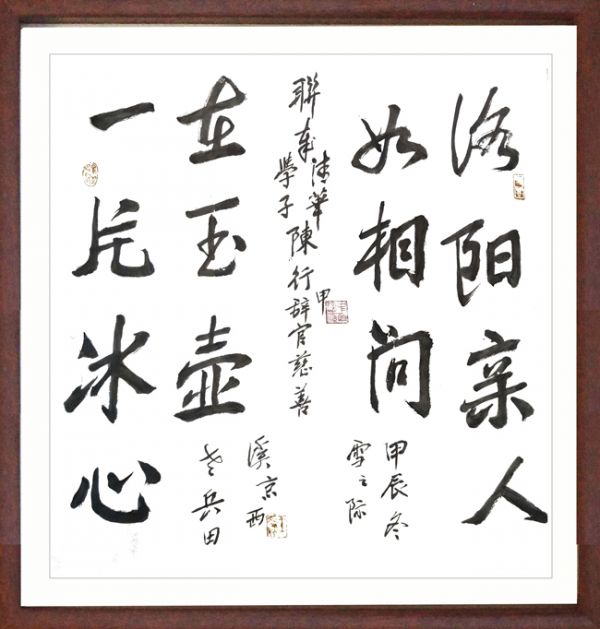 洛阳亲人
如相问
一片冰心
在玉壶
聯奉清華
學子陳行甲辞官慈善
甲辰冬
雪之际
溪京西
老兵田